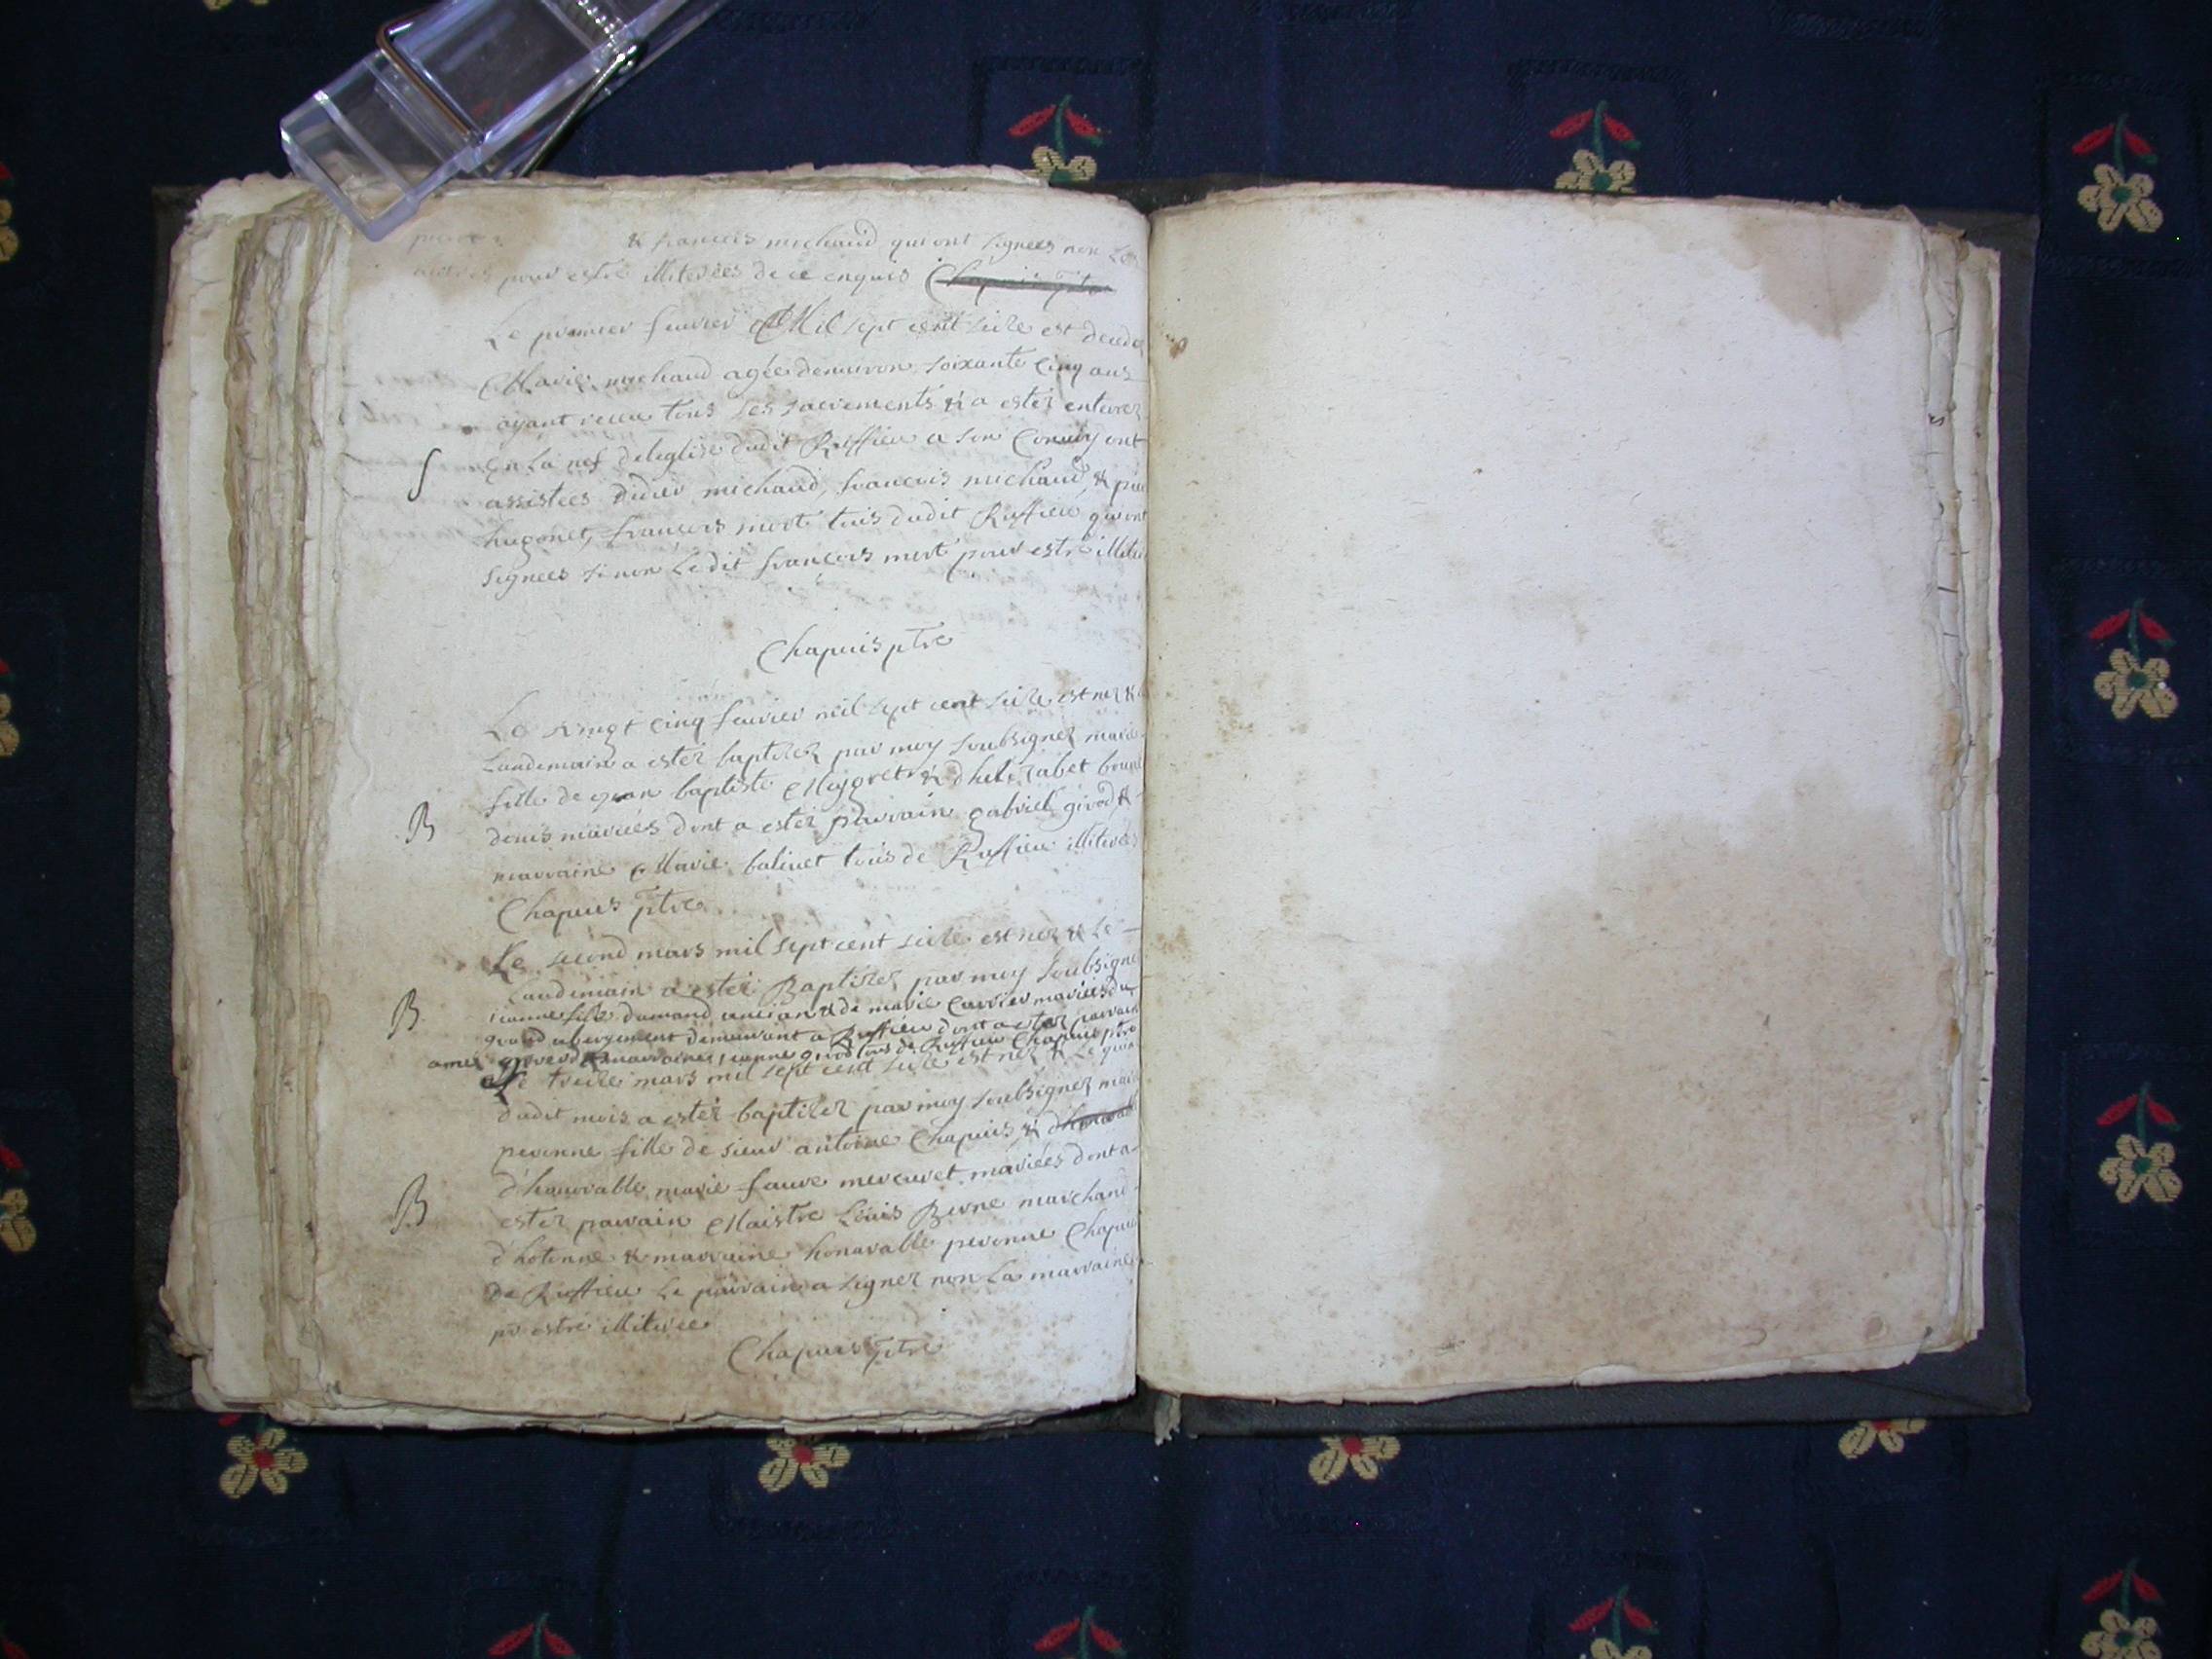 & francois michaud qui ont signees non Les
autres pour estre illiterées de ce enquis Chapuis ptre
Le premier feuvrier Mil sept cent seize est decedez
Marie michaud agée denuiron soixante Cinq ans
ayant receu tous ses sacrements & a estéz enterrez
En La nef de leglise dudit Ruffieu a son Convoy ont
S
assistees didier michaud, francois michaud, &
hugonet, francois mort tous dudit Ruffieu qui ont
signees sinon Ledit francois mort pour estre illit
Chapuis ptre
Le vingt cinq feuvrier mil sept cent seize est nez &
Landemain a estéz baptizez par moy soubsignez marie
fille de jean baptiste & d'helizabet
B
mariées dont a estéz parrain gabriel girod &
marraine Marie balivet tous de Ruffieu illiterées
Chapuis ptre
Le second mars mil sept cent seize est nez & Le
Landemain a estéz Baptizez par moy Soubsigne
B
ieanne fille damand & de marie Carrier mariées du
grand abergement demeurant a Ruffieu dont a estez parrain
& marraine ieanne girod tous de Ruffieu Chapuis ptre
Le treize mars mil sept cent seize est nez &
dudit mois a estéz baptizez par moy soubsignez
peronne fille de sieur antoine Chapuis &
d'honnrable marie faure mercuret mariées dont a
B
estéz parrain Maistre Louis Berne marchand
d'hotonne & marraine honnrable peronne Chapuis
de Ruffieu Le parrain a signez non La marraine
pr estre illiterée
Chapuis ptre